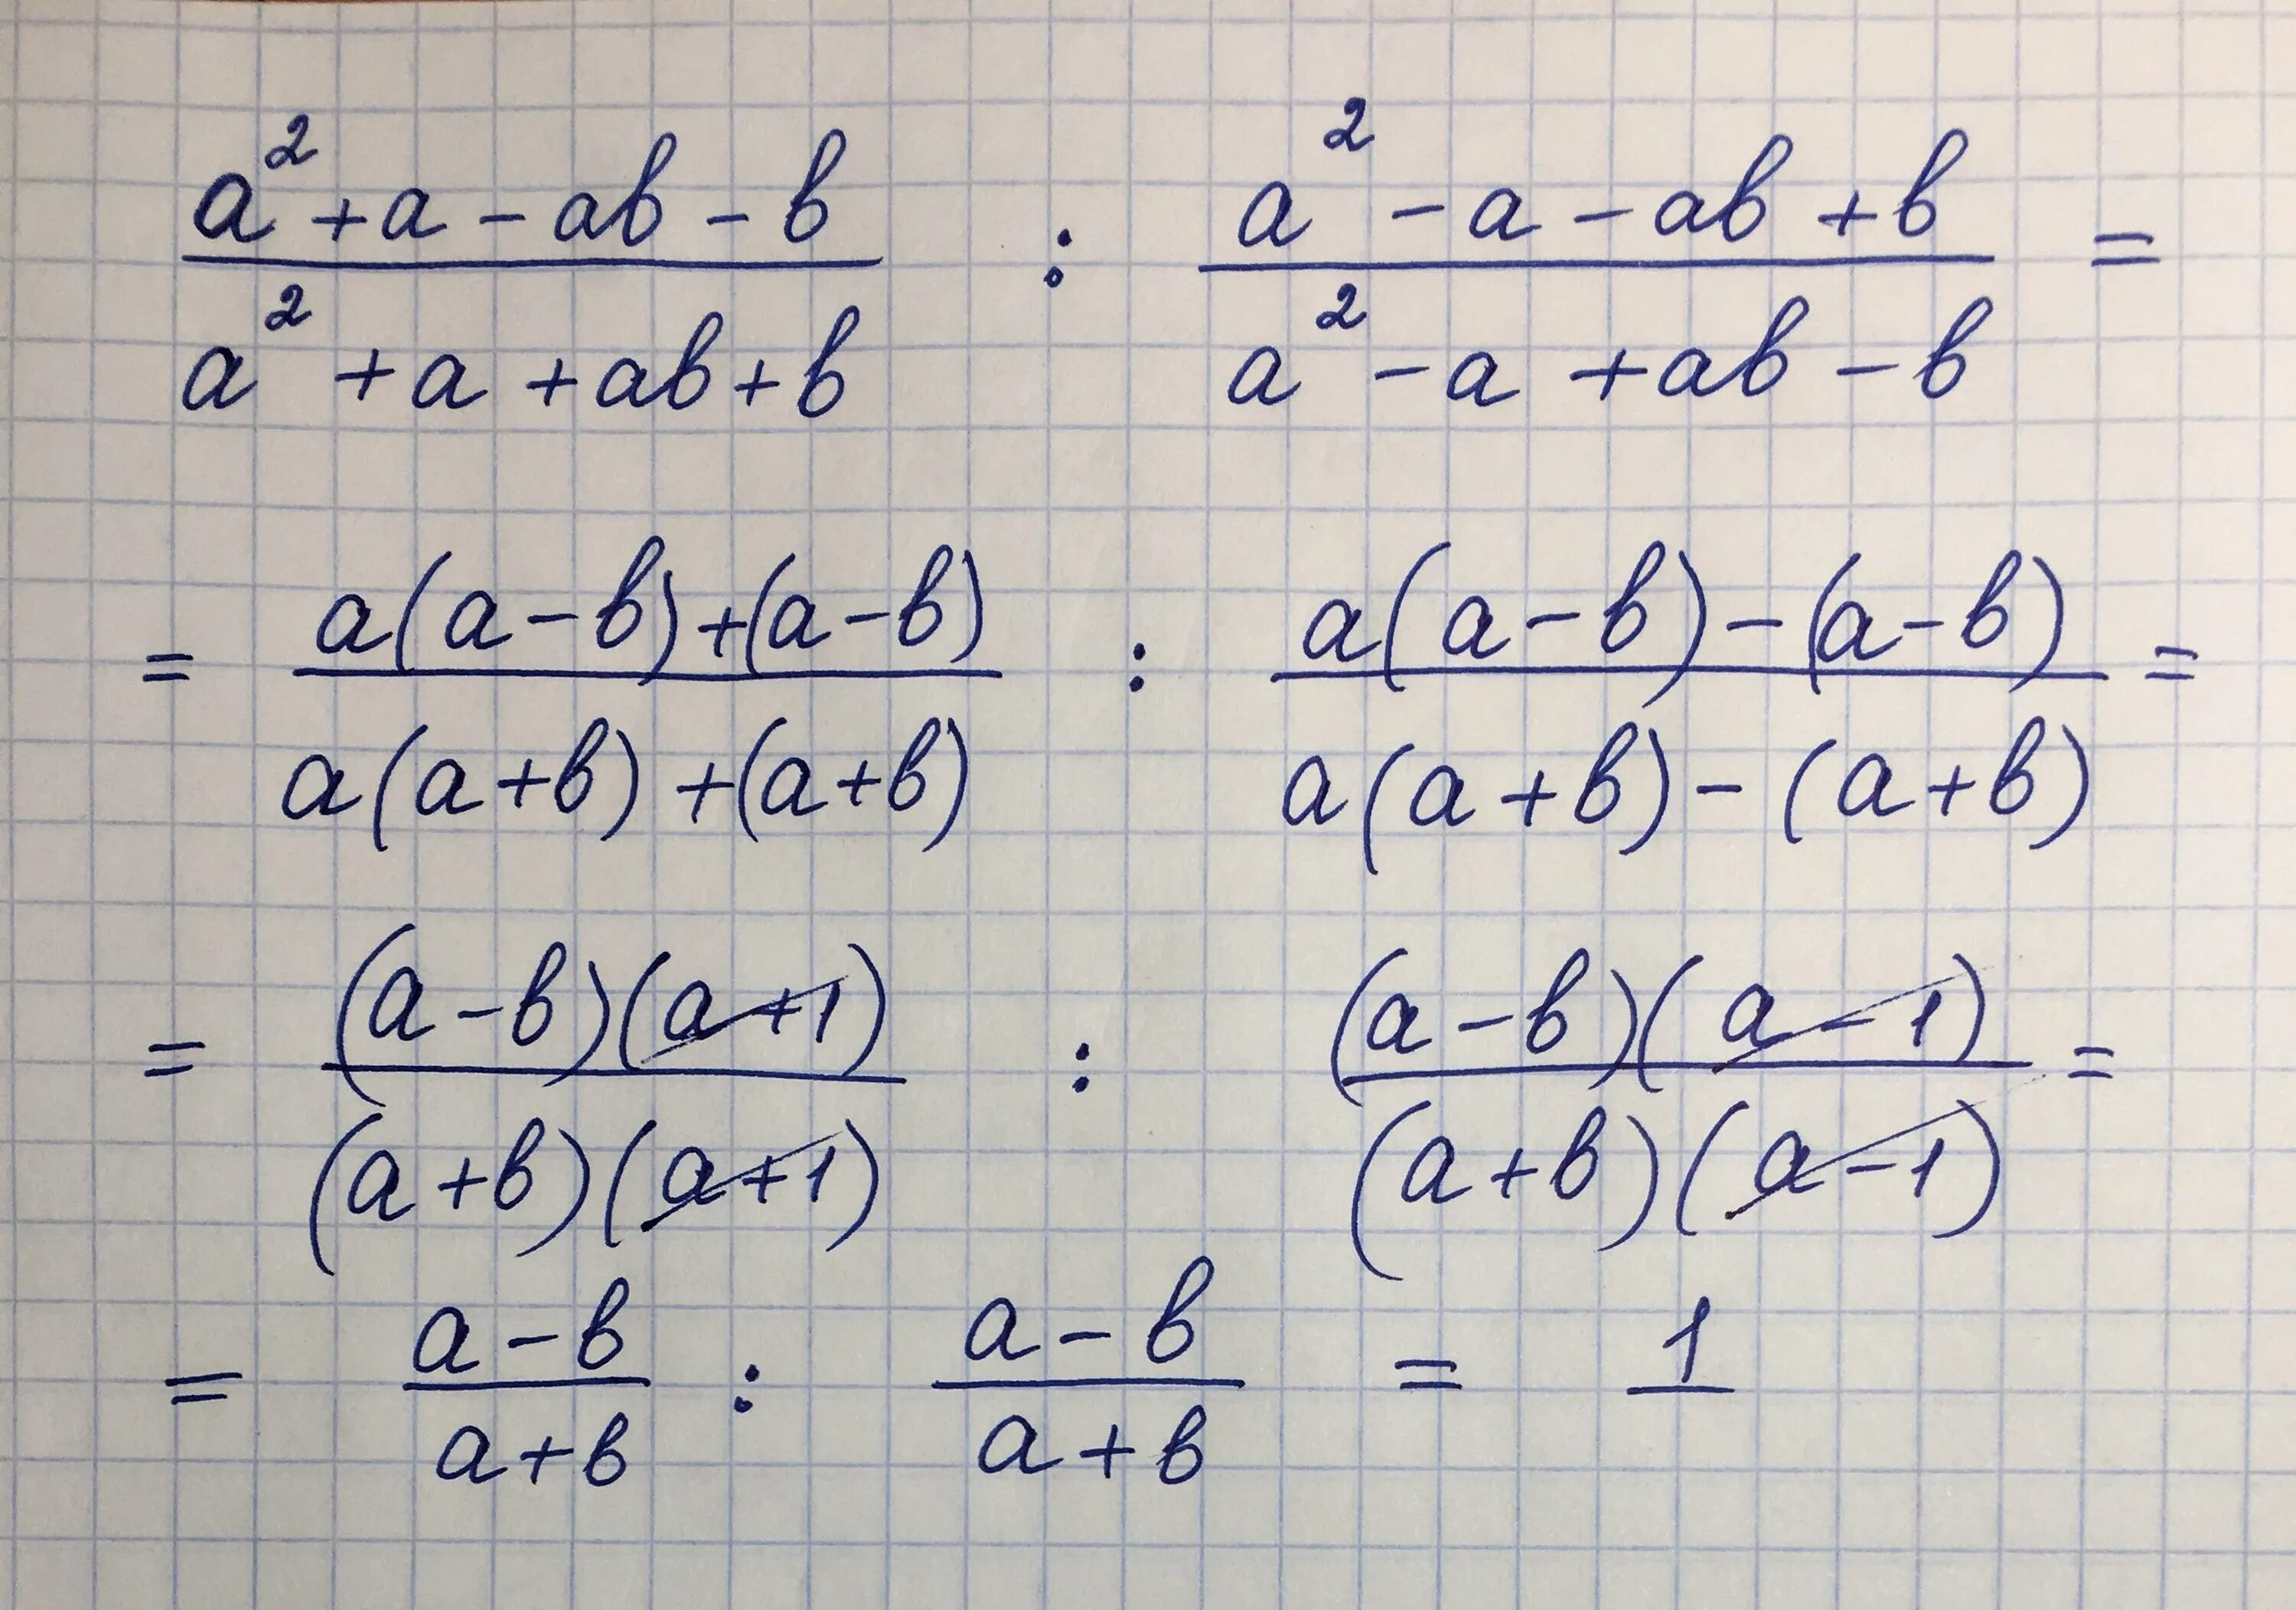 (a² + a - ab - b)/(a² + a + ab + b) : (a² - a - ab + b)/(a² - a + ab - b) =
= (a(a - b) + (a - b))/(a(a + b) + (a + b)) : (a(a - b) - (a - b))/(a(a + b) - (a + b)) =
= ((a - b)(a + 1))/((a + b)(a + 1)) : ((a - b)(a - 1))/((a + b)(a - 1)) =
= (a - b)/(a + b) : (a - b)/(a + b) = 1